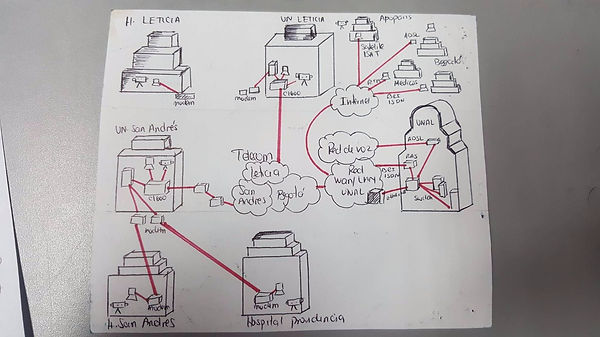 H. LETICIA
modem
UN LETICIA
modem
C1600
Apaporis
Satelite
ISAT
ADSL
Bogotá
Médicos
BES
ISDN
Internet
UN San Andrés
C1600
modem
Telecom
leticia
San
Andres
Bogotá
Red de voz
Red
wan/LAN
UNAL
BES
ISDN
UNAL
ADSL
RAS
Switch
modem
H. San Andrés
modem
Hospital providencia